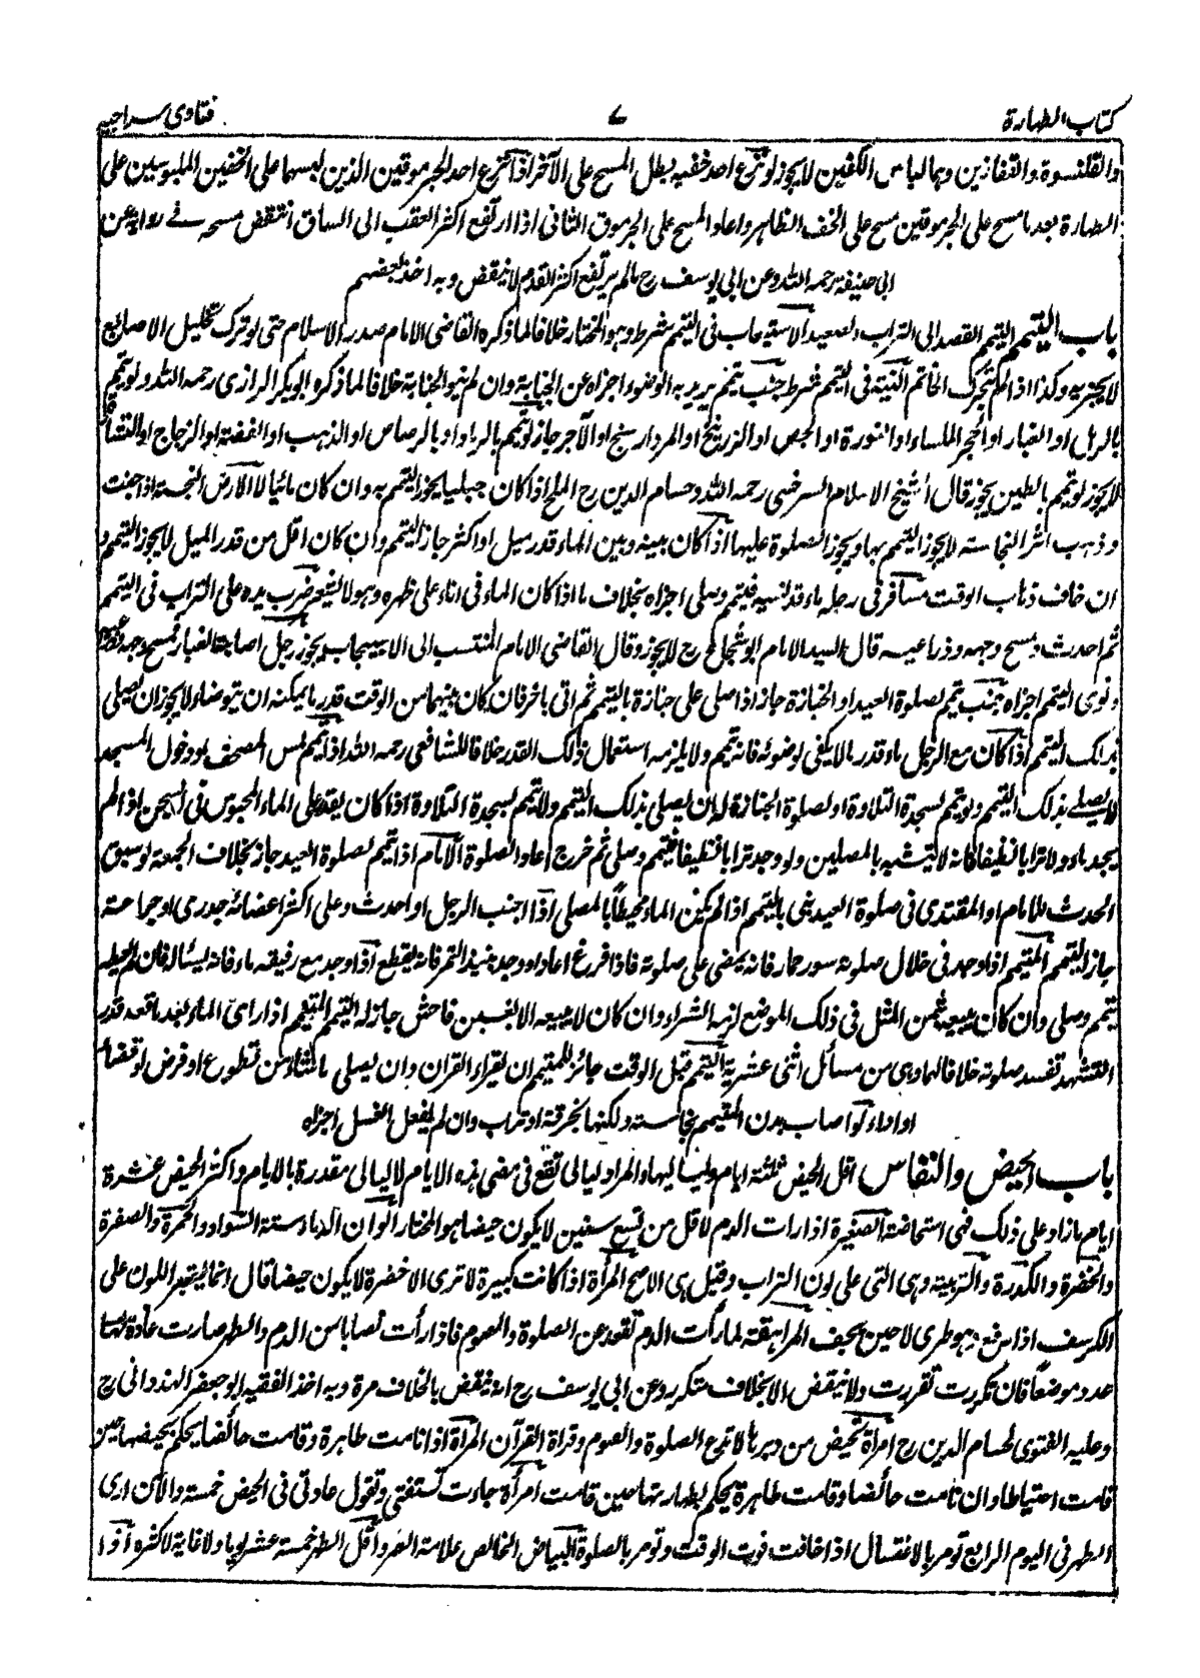 كتاب الطهارة ۷ فتاوى سراجيه
والقلنسوة والقفازين وهما لباس الكفين لا يجوز لو نزع احد خفيه بطل المسح على الآخر اذا نزع احد الجرموقين الذين لبسهما على الخفين الملبوسين على
الطهارة بعد ما مسح على الجرموقين مسح على الخف الظاهر واعاد المسح على الجرموق الثانى اذا ارتفع اكثر العقب الى الساق انتقض مسحه فے رواية عن
ابى حنيفة رحمه الله وعن ابى يوسف رح ما لم يرتفع اكثر القدم لا ينقض وبه اخذ بعضهم
باب التيمم التيمم القصد الى التراب الصعيد الاستيعاب فى التيمم شرط وهو المختار خلافا لما ذكره القاضى الامام صدر الاسلام حتى لو ترك تخليل الاصابع
لا يجزيه وكذا اذا لم يحرك الخاتم النية فى التيمم شرط جنب تيمم يريد به الوضوء اجزاه عن الجنابة وان لم ينو الجنابة خلافا لما ذكره ابوبكر الرازى رحمه الله ولو تيمم
بالرمل او الغبار او الحجر الملساء او النورة او الجص او الزرنيخ او المردار سنج او الآجر جاز لو تيمم بالرماد او بالرصاص او الذهب او الفضة او الزجاج او
لا يجوز لو تيمم بالطين يجوز قال شيخ الاسلام السرخسى رحمه الله وحسام الدين رح الملح اذا كان جبليا يجوز التيمم به وان كان مائيا لا الارض النجسة اذا جفت
وذهب اثر النجاسة لا يجوز التيمم بها ويجوز الصلوة عليها اذا كان بينه وبين الماء قدر ميل او اكثر جاز التيمم وان كان اقل من قدر الميل لا يجوز التيمم و
ان خاف ذهاب الوقت مسافر فى رحله ماء قد نسيه فتيمم وصلى اجزاه بخلاف ما اذا كان الماء فى اناء على ظهره وهو لا يشعر ضرب يده على التراب فى التيمم
ثم احدث ومسح وجهه وذراعيه قال السيد الامام ابو شجاع رح لا يجوز وقال القاضى الامام المنتسب الى الاسبيجاب يجوز رجل اصابه الغبار فمسح وجهه
ونوى التيمم اجزاه جنب تيمم لصلوة العيد او الجنازة جاز اذا صلى على جنازة بالتيمم ثم اتى باخرى فان كان بينهما من الوقت قدر ما يمكنه ان يتوضأ لا يجوز ان يصلى
بذلك التيمم اذا كان مع الرجل ماء قدر ما لا يكفى لوضوئه فانه تيمم ولا يلزمه استعمال ذلك القدر خلافا للشافعى رحمه الله اذا تيمم لمس المصحف او دخول المسجد
لا يصلے بذلك التيمم ولو تيمم لسجدة التلاوة او لصلوة الجنازة له ان يصلى بذلك التيمم ولا تيمم لسجدة التلاوة اذا كان يقدر على الماء المحبوس فى السجن اذا لم
يجد ماء ولا ترابا نظيفا فانه لا يتشبه بالمصلين ولو وجد ترابا نظيفا فتيمم وصلى ثم خرج اعاد الصلوة الامام اذا تيمم لصلوة العيد جاز بخلاف الجمعة لو سبق
الحدث للامام او المقتدى فى صلوة العيد يبنى بالتيمم اذا لم يكن الماء محيطا بالمصلى اذا اجنب الرجل او احدث وعلى اكثر اعضائه جدرى او جراحة
جاز التيمم المتيمم اذا وجد فى خلال صلوته سور حمار فانه يمضى على صلوته فاذا فرغ اعاد ولو وجد نبيذ التمر فانه يقطع اذا وجد مع رفيقه ماء فانه يسأله فان لم يعطه
تيمم وصلى وان كان يبيعه بثمن المثل فى ذلك الموضع لزمه الشراء وان كان لا يبيعه الا بغبن فاحش جاز له التيمم المتيمم اذا رأى الماء بعد ما قعد قدر
التشهد تفسد صلوته خلافا لهما وهى من مسائل اثنى عشرية التيمم قبل الوقت جائز للمتيمم ان يقراء القران وان يصلى ما شاء من تطوع او فرض او قضاء
او اداء لو اصاب بدن المتيمم نجاسة ولكنها بخرقة او تراب وان لم يفعل الغسل اجزاه
باب الحيض والنفاس اقل الحيض ثلثة ايام وليا ليها والمراد ليالى تقع فى مضى هذه الايام لا ليالى مقدرة بالايام واكثر الحيض عشرة
ايام ما زاد على ذلك فهى استحاضة الصغيرة اذا رات الدم لاقل من تسع سنين لا يكون حيضا هو المختار الوان الدماء ستة السواد والحمرة والصفرة
والخضرة والكدرة والتربية وهى التى على لون التراب وقيل هى الاصح المرأة اذا كانت كبيرة لا ترى الا خضرة لا يكون حيضا قال انما يعتبر اللون على
الكرسف اذا رفع وهو طرى لا حين يجف المراهقة لما رأت الدم تقعد عن الصلوة والصوم فاذا رأت نصابا من الدم والطهر صارت عادة لها
عدد وموضعا فان تكررت تقررت ولا ينتقض الا بخلاف متكرر وعن ابى يوسف رح انه ينقض بالخلاف مرة وبه اخذ الفقيه ابو جعفر الهندوانى رح
وعليه الفتوى لحسام الدين رح امرأة تحيض من دبرها لا تدع الصلوة والصوم وقراة القرآن المرأة اذا نامت طاهرة وقامت حائضا يحكم بحيضها حين
قامت احتياطا وان نامت حائضا وقامت طاهرة يحكم بطهارتها حين قامت امرأة جاءت تستفتى وتقول عادتى فى الحيض خمسة والآن ارى
الطهر فى اليوم الرابع تومر بالاغتسال اذا خافت فوت الوقت وتومر بالصلوة البياض الخالص علامة الطهر واقل الطهر خمسة عشر يوما ولا غاية لاكثره اذا